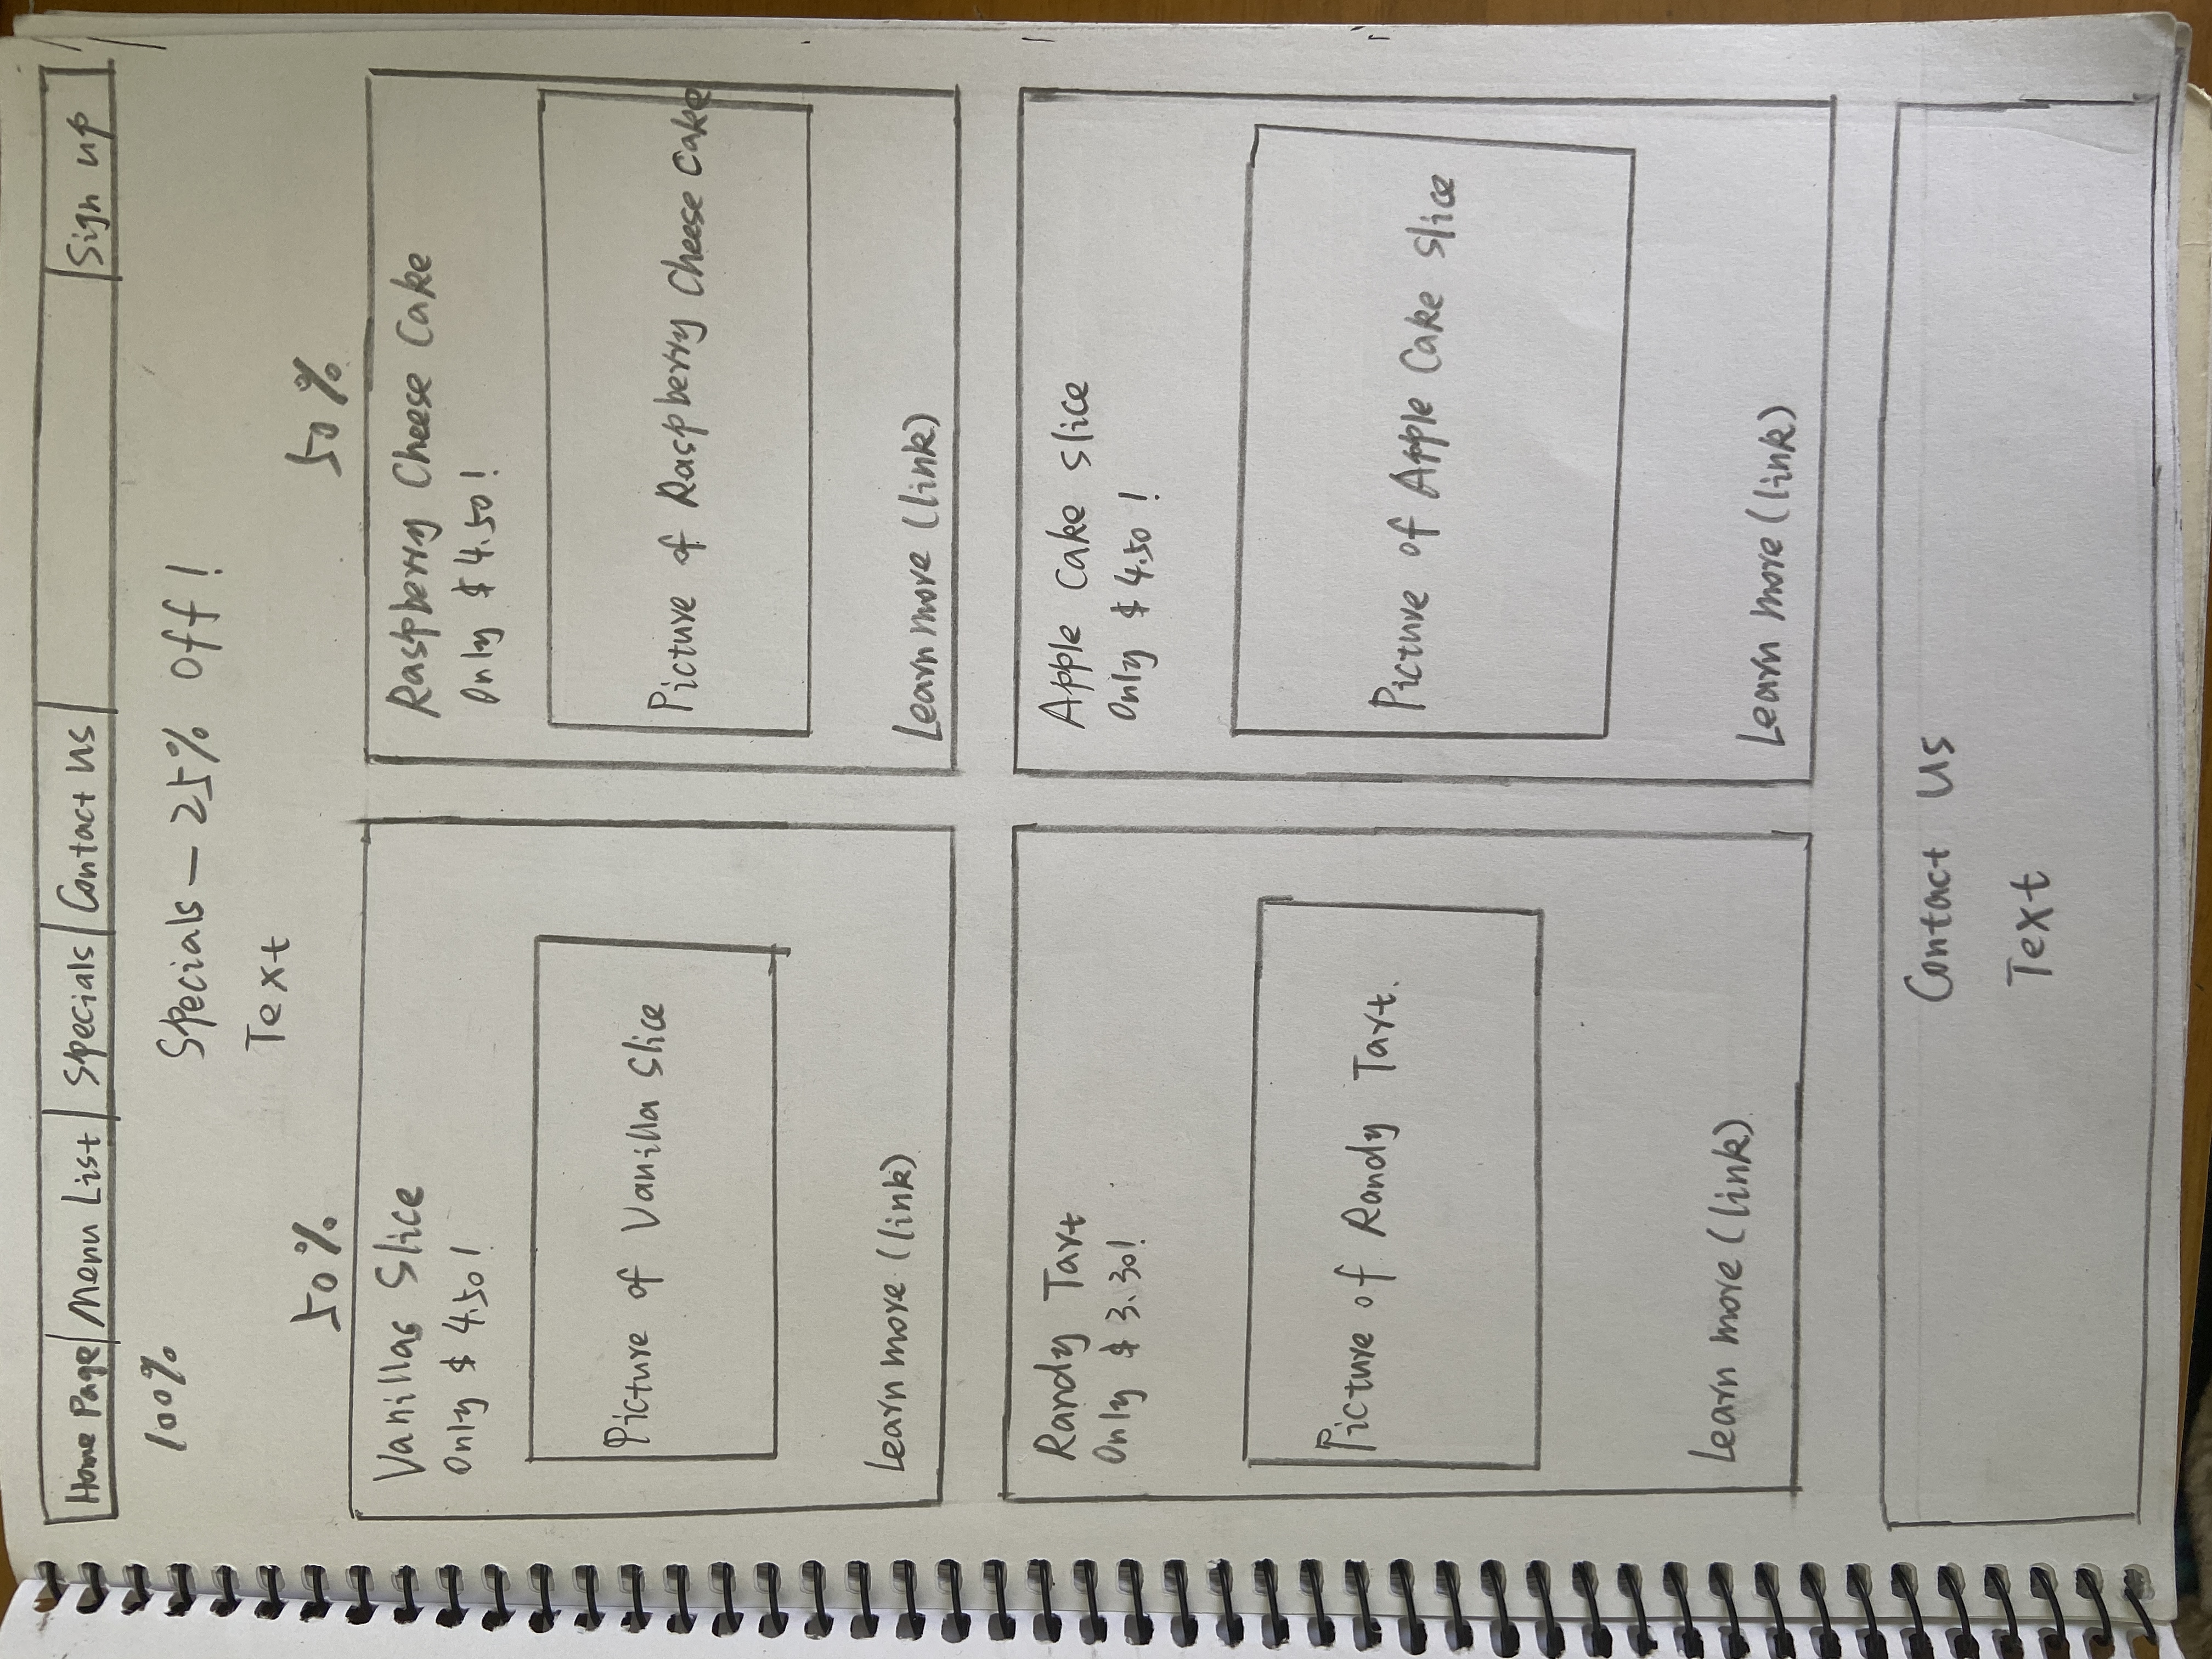 Home Page Menu List Specials Contact Us Sign up
100%
Specials — 25% Off !
Text
50% 50%
Vanillas Slice
Only $ 4.50 !
Picture of Vanilla Slice
Learn more (link)
Raspberry Cheese Cake
Only $ 4.50 !
Picture of Raspberry Cheese Cake
Learn more (link)
Randy Tart
Only $ 3.30!
Picture of Randy Tart.
Learn more (link)
Apple Cake Slice
Only $ 4.50 !
Picture of Apple Cake Slice
Learn more (link)
Contact Us
Text